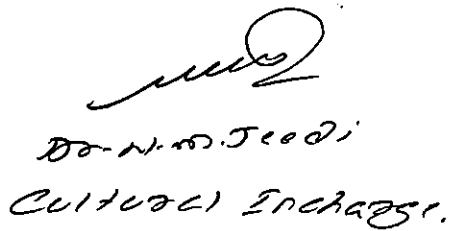 Dr. N. M. Jeedi
Cultural Incharge.